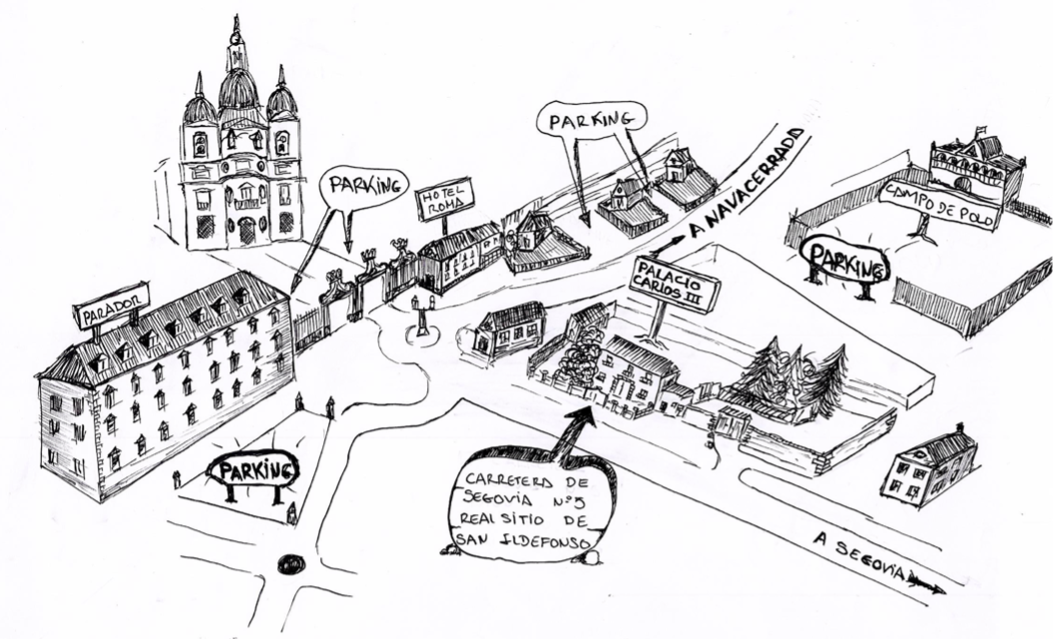 PARKING
PARKING
HOTEL
ROMA
A NAVACERRADA
CAMPO DE POLO
PARKING
PALACIO
CARLOS III
PARADOR
PARKING
CARRETERA DE
SEGOVIA Nº5
REAL SITIO DE
SAN ILDEFONSO
A SEGOVIA